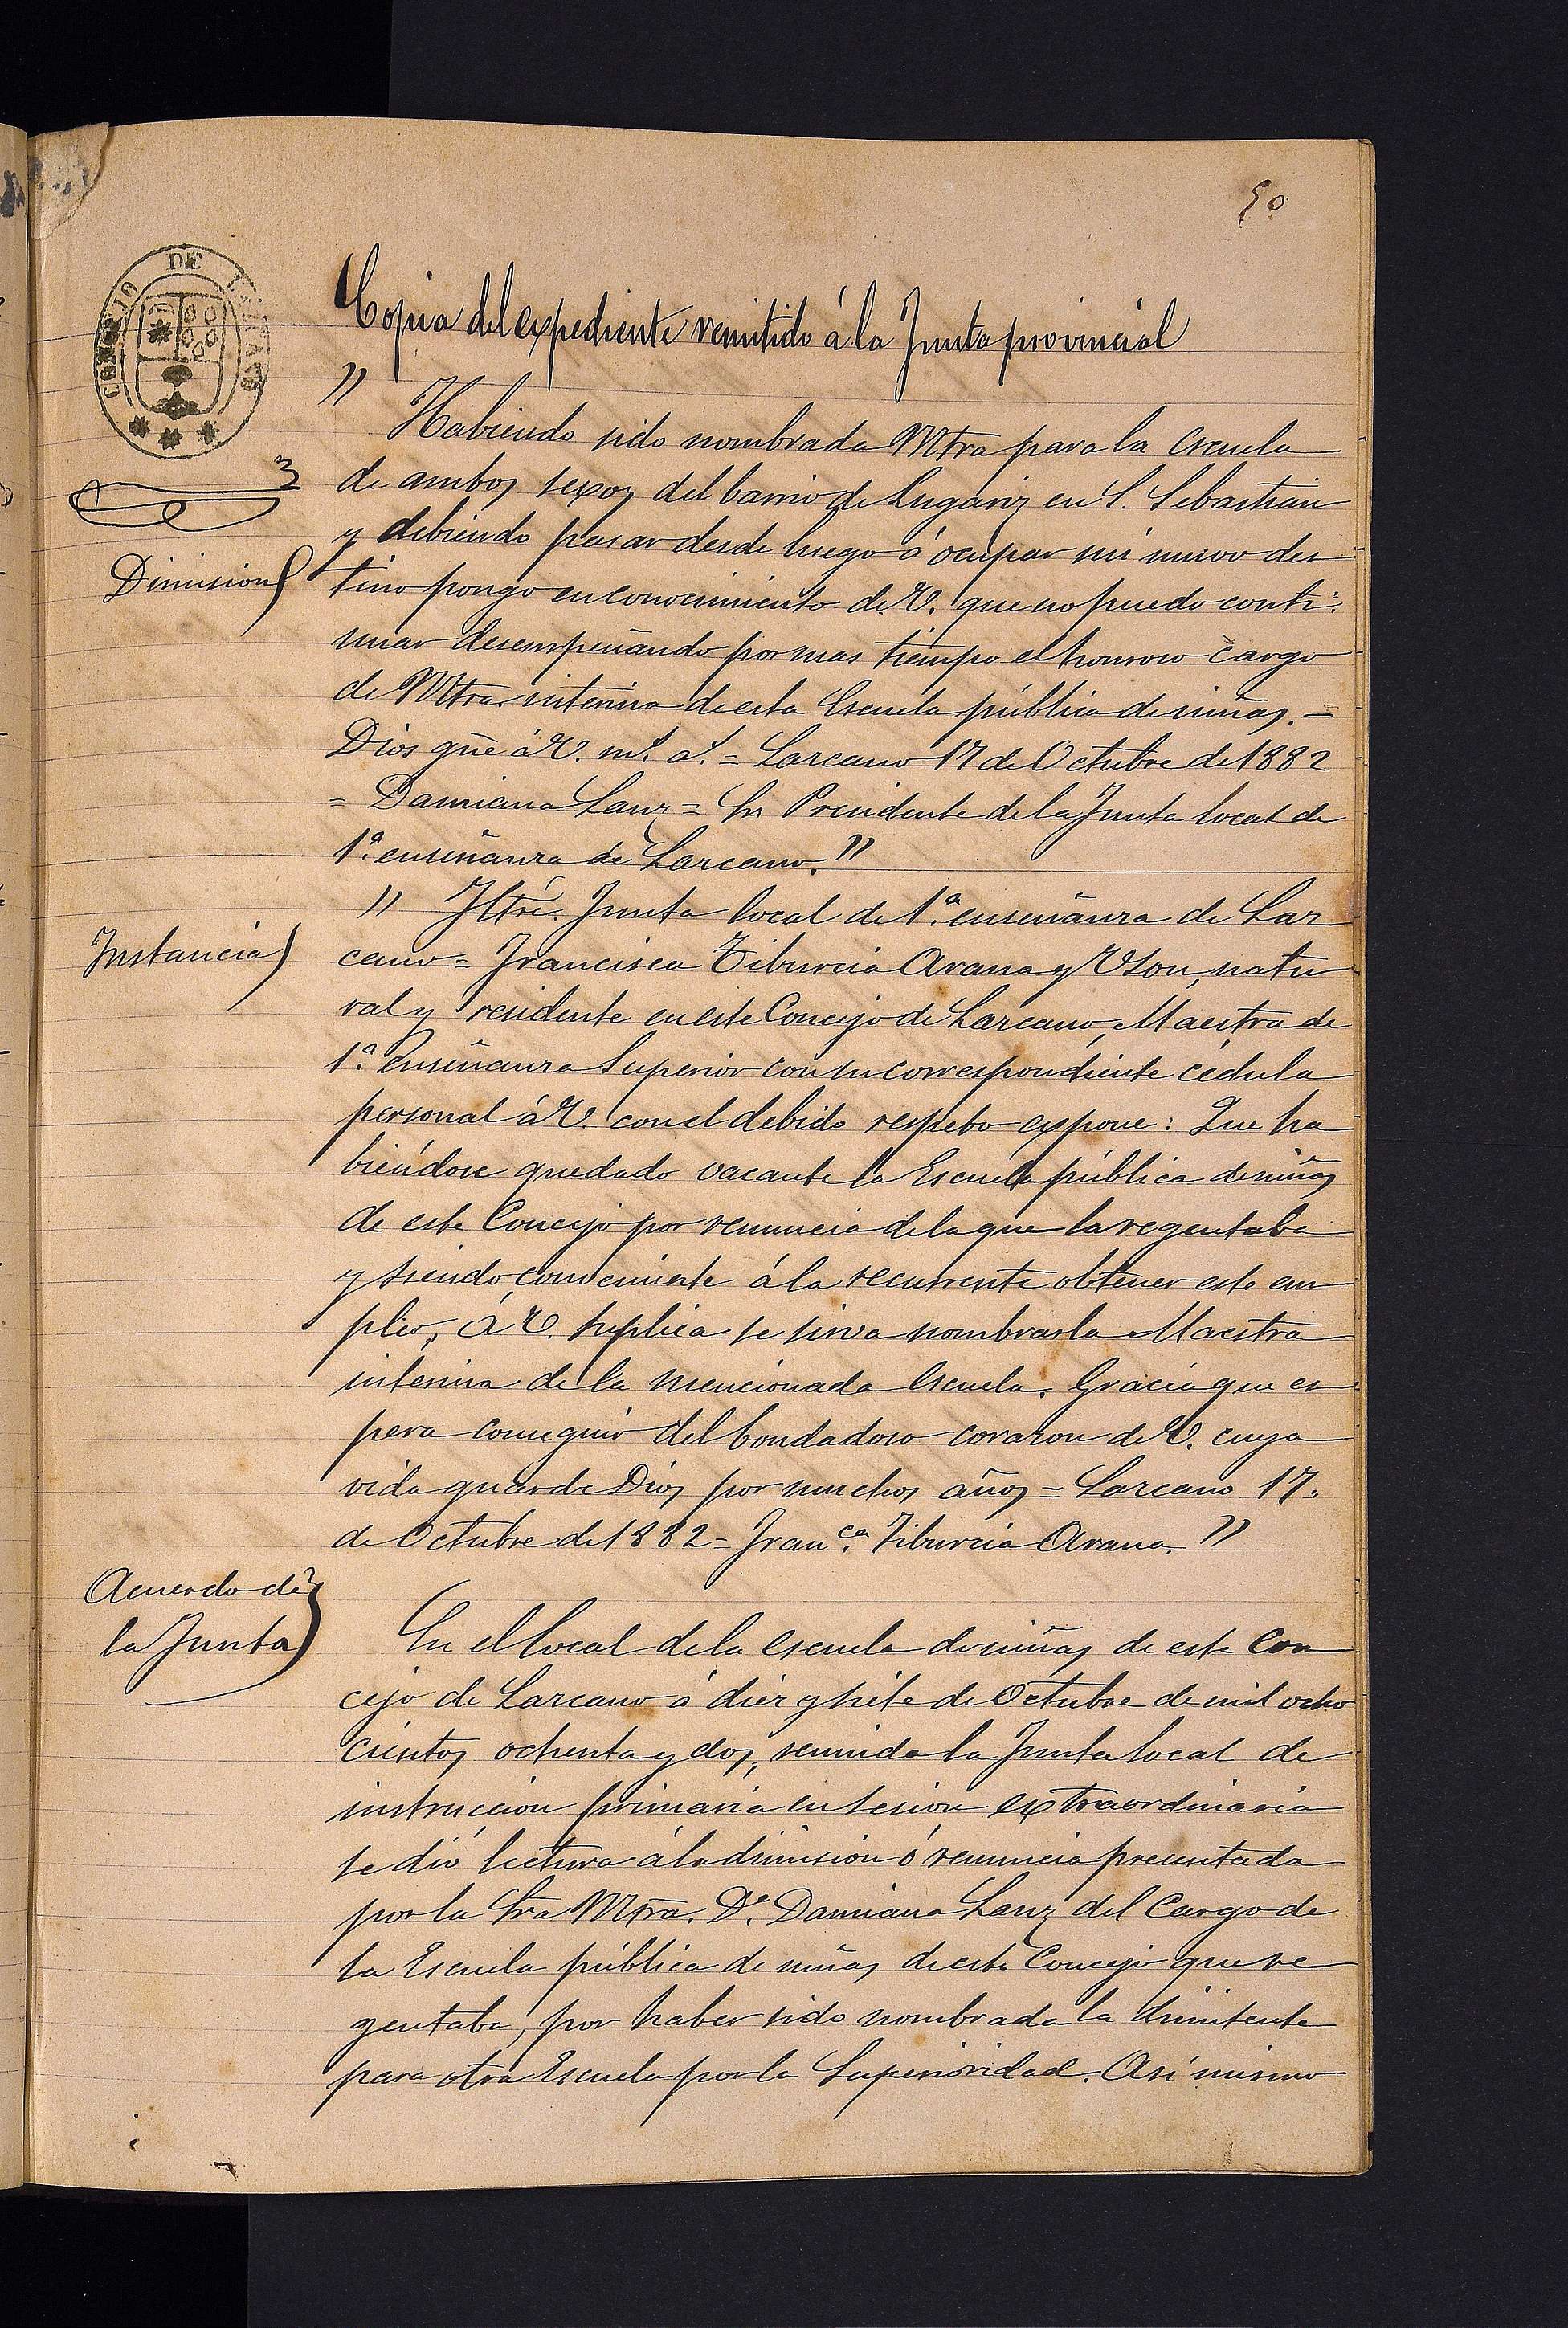 50
CONCEJO DE LARCANO
Copia del expediente remitido á la Junta provincial
" Habiendo sido nombrada Mtra para la escuela
de ambos sexos del barrio de Lugariz en S. Sebastian
y debiendo pasar desde luego á ocupar mi nuevo des
Dimision
tino pongo en conocimiento de V. que no puedo conti-
nuar desempeñando por mas tiempo el honroso cargo
de Mtra. interina de esta Escuela pública de niñas. =
Dios gue á V. ms. as. = Larcano 17 de Octubre de 1882
= Damiana Lanz = Sr. Presidente de la Junta local de
1ª. enseñanza de Larcano. "
" Iltre. Junta local de 1ª. enseñanza de Lar
Instancia
cano = Francisca Tiburcia Arana y Uson, natu
ral y residente en este Concejo de Larcano, Maestra de
1ª. Enseñanza Superior con su correspondiente cédula
personal á V. con el debido respeto expone: Que ha
biéndose quedado vacante la Escuela pública de niñas
de este Concejo por renuncia de la que la regentaba
y siendo conveniente á la recurrente obtener este em
pleo, á V. suplica se sirva nombrarla Maestra
interina de la mencionada Escuela. Gracia que es
pera conseguir del bondadoso corazon de V. cuya
vida guarde Dios por muchos años = Larcano 17.
de Octubre de 1882 = Franca. Tiburcia Arana. "
Acuerdo de
la Junta
En el local de la escuela de niñas de este Con
cejo de Larcano á diez y siete de Octubre de mil ocho
cientos ochenta y dos, reunida la Junta local de
instruccion primaria en sesion extraordinaria
se dió lectura á la dimision ó renuncia presentada
por la Sra Mtra. Da. Damiana Lanz del Cargo de
la Escuela pública de niñas de este Concejo que re
gentaba, por haber sido nombrada la dimitente
para otra Escuela por la Superioridad. Así mismo